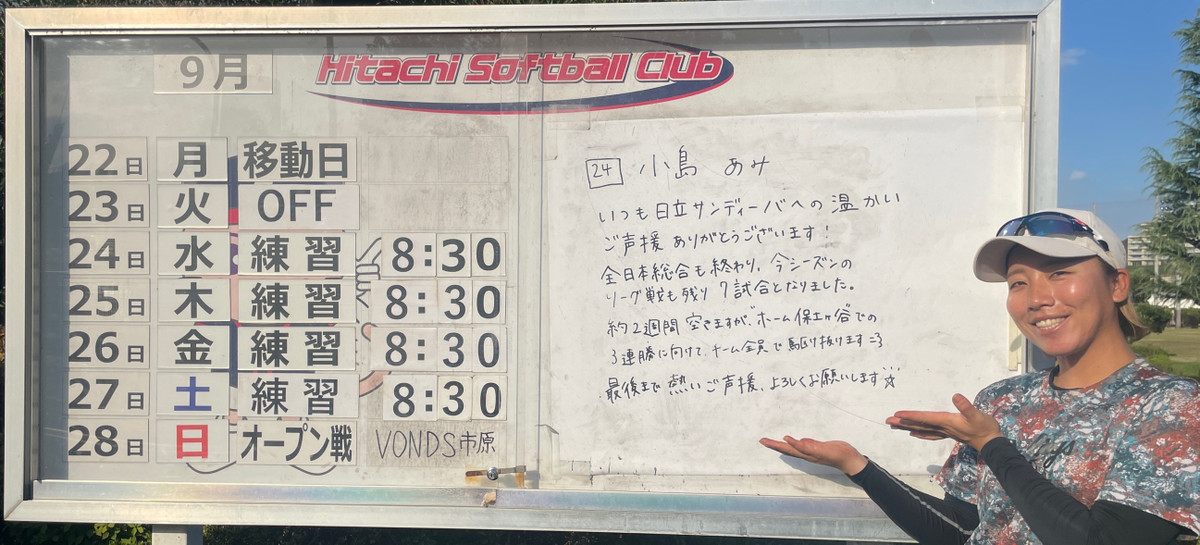 9月
Hitachi Softball Club
22日 月 移動日
23日 火 OFF
24日 水 練習 8:30
25日 木 練習 8:30
26日 金 練習 8:30
27日 土 練習 8:30
28日 日 オープン戦 VONDS市原
24 小島 あみ
いつも日立サンディーバへの温かい
ご声援ありがとうございます!
全日本総合も終わり、今シーズンの
リーグ戦も残り7試合となりました。
約2週間空きますが、ホーム保土ヶ谷での
3連勝に向けて、チーム全員で駆け抜けます=3
最後まで熱いご声援、よろしくお願いします☆